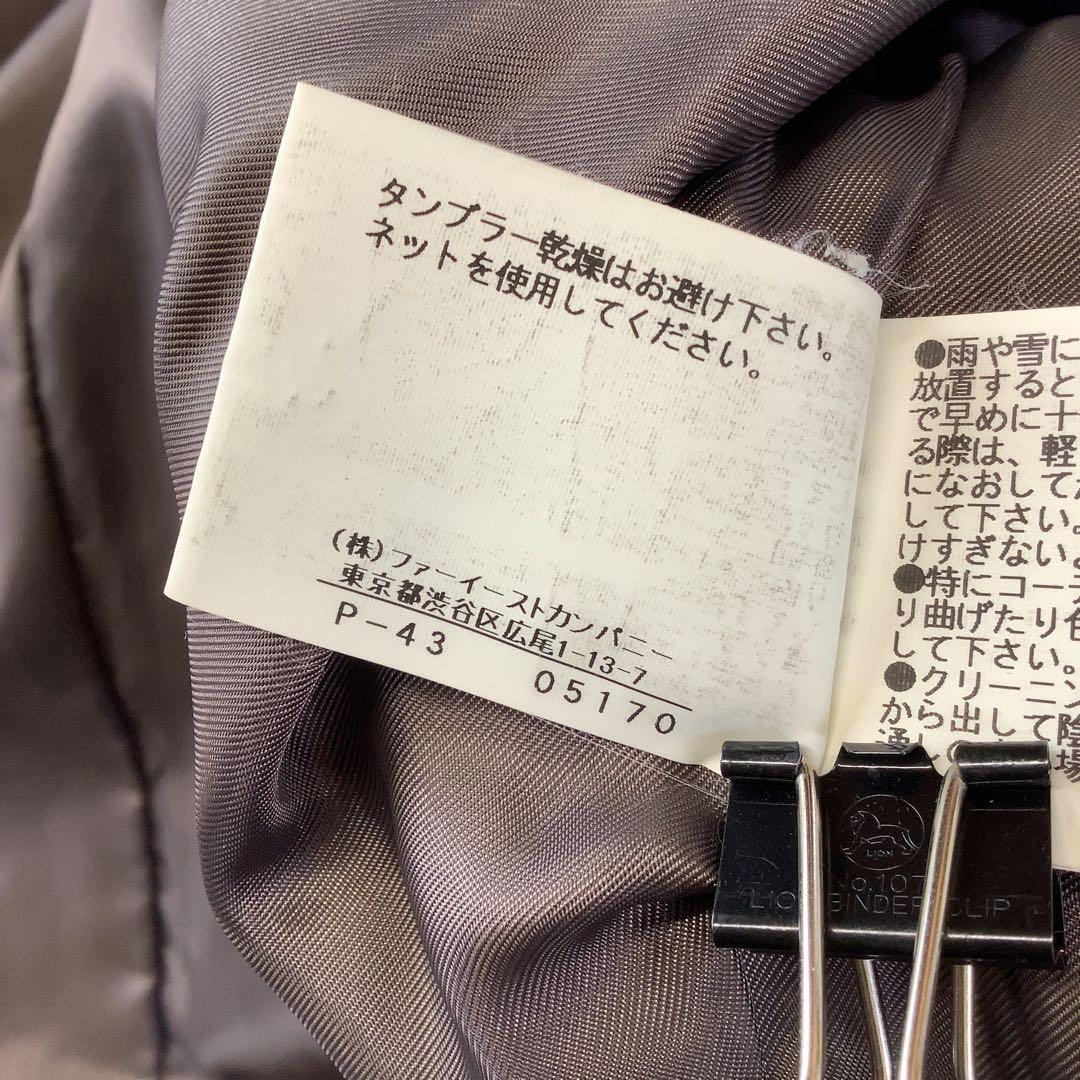 タンブラー乾燥はお避け下さい。
ネットを使用してください。
(株)ファーイーストカンパニー
東京都渋谷区広尾1-13-7
P-43
05170
●雨や雪に
放置すると
で早めに十
る際は、軽
になおして
して下さい。
けすぎない
●特にコー
り曲げたり色
して下さい。
●クリーニン
から出して陰
LION
No.107
LION BINDER CLIP